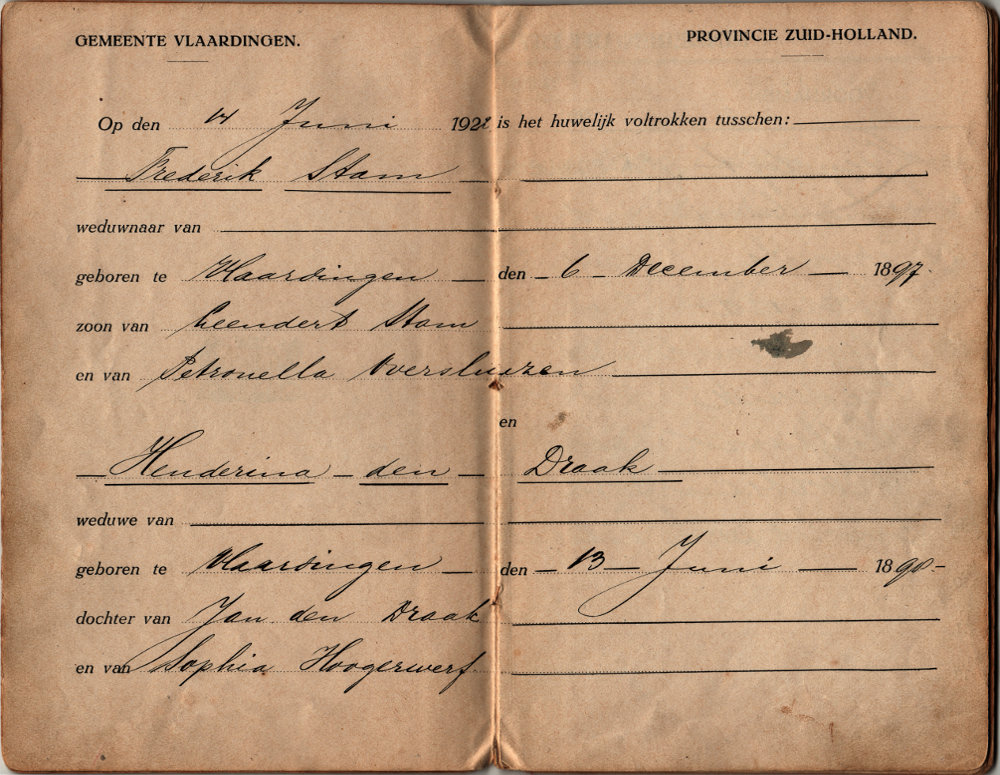 GEMEENTE VLAARDINGEN. PROVINCIE ZUID-HOLLAND.
Op den 14 Juni 192 is het huwelijk voltrokken tusschen:
Frederik Stam
weduwnaar van
geboren te Vlaardingen den 6 December 1897
zoon van Leendert Stam
en van Petronella Oversluizen
en
Henderina den Draak
weduwe van
geboren te Vlaardingen den 13 Juni 1890
dochter van Jan den Draak
en van Sophia Hoogerwerf